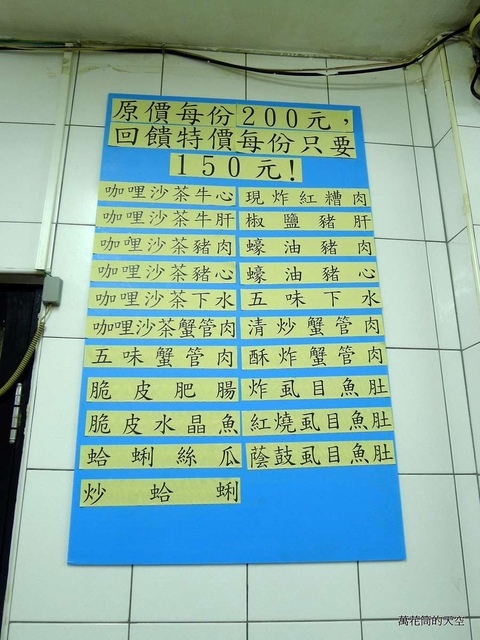 原價每份200元，
回饋特價每份只要
150元!
咖哩沙茶牛心 現炸紅糟肉
咖哩沙茶牛肝 椒鹽豬肝
咖哩沙茶豬肉 蠔油豬肉
咖哩沙茶豬心 蠔油豬心
咖哩沙茶下水 五味下水
咖哩沙茶蟹管肉 清炒蟹管肉
五味蟹管肉 酥炸蟹管肉
脆皮肥腸 炸虱目魚肚
脆皮水晶魚 紅燒虱目魚肚
蛤蜊絲瓜 蔭鼓虱目魚肚
炒蛤蜊
萬花筒的天空